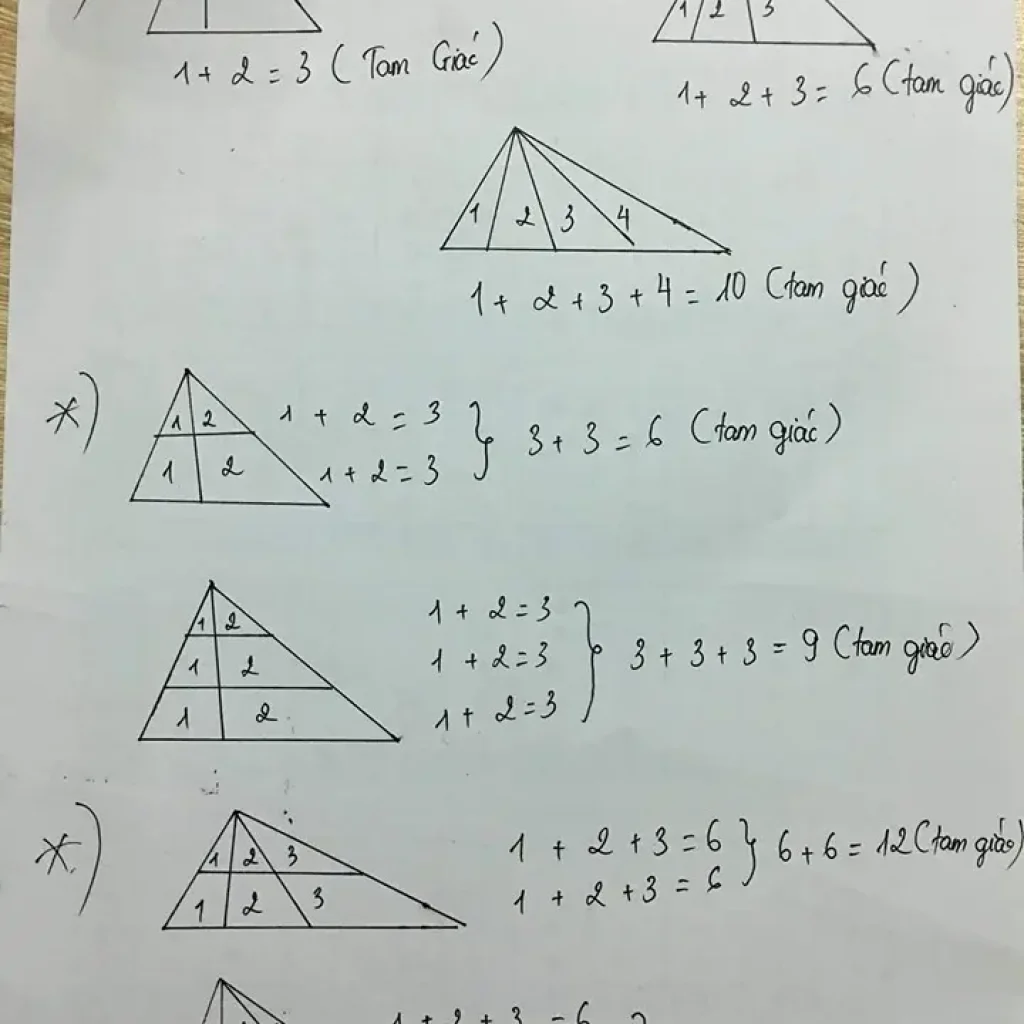 1 2 3
1 + 2 = 3 (Tam Giác)
1 + 2 + 3 = 6 (tam giác)
1 2 3 4
1 + 2 + 3 + 4 = 10 (tam giác)
*)
1 2
1 + 2 = 3
1 2
1 + 2 = 3
} 3 + 3 = 6 (tam giác)
1 2
1 + 2 = 3
1 2
1 + 2 = 3
1 2
1 + 2 = 3
} 3 + 3 + 3 = 9 (tam giác)
*)
1 2 3
1 + 2 + 3 = 6
1 2 3
1 + 2 + 3 = 6
} 6 + 6 = 12 (tam giác)
1 + 2 + 3 = 6